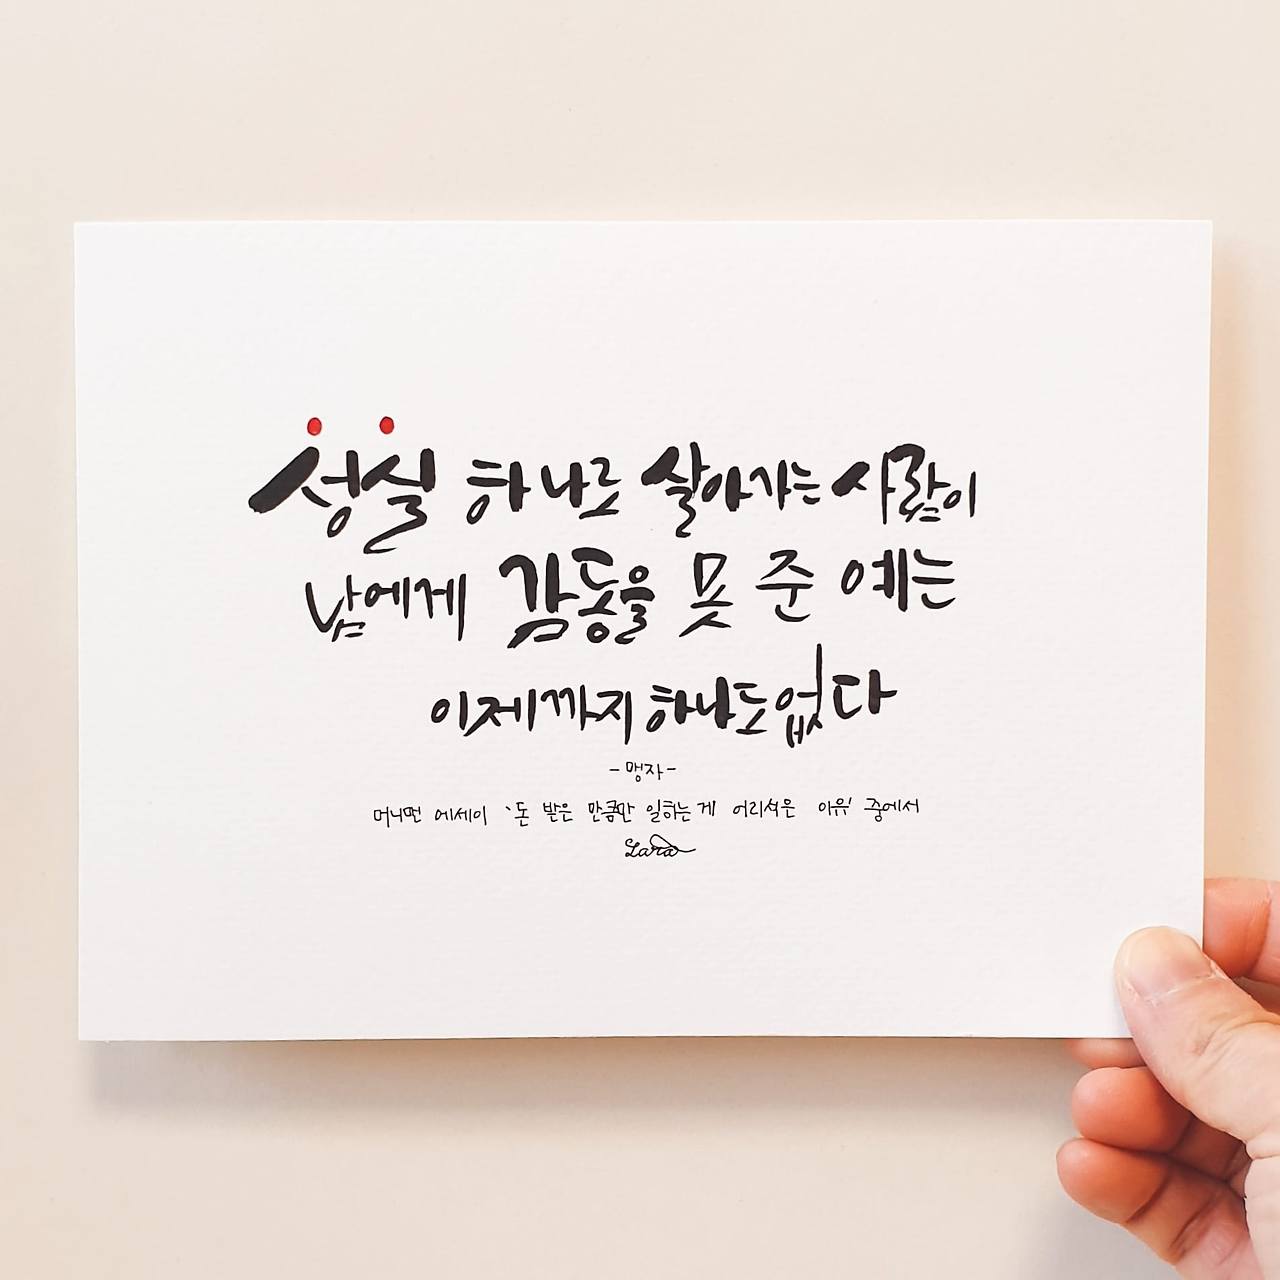 성실 하나로 살아가는 사람이
남에게 감동을 못 준 예는
이제까지 하나도 없다
-맹자-
머니먼 에세이 '돈 받은 만큼만 일하는 게 어리석은 이유' 중에서
Lara